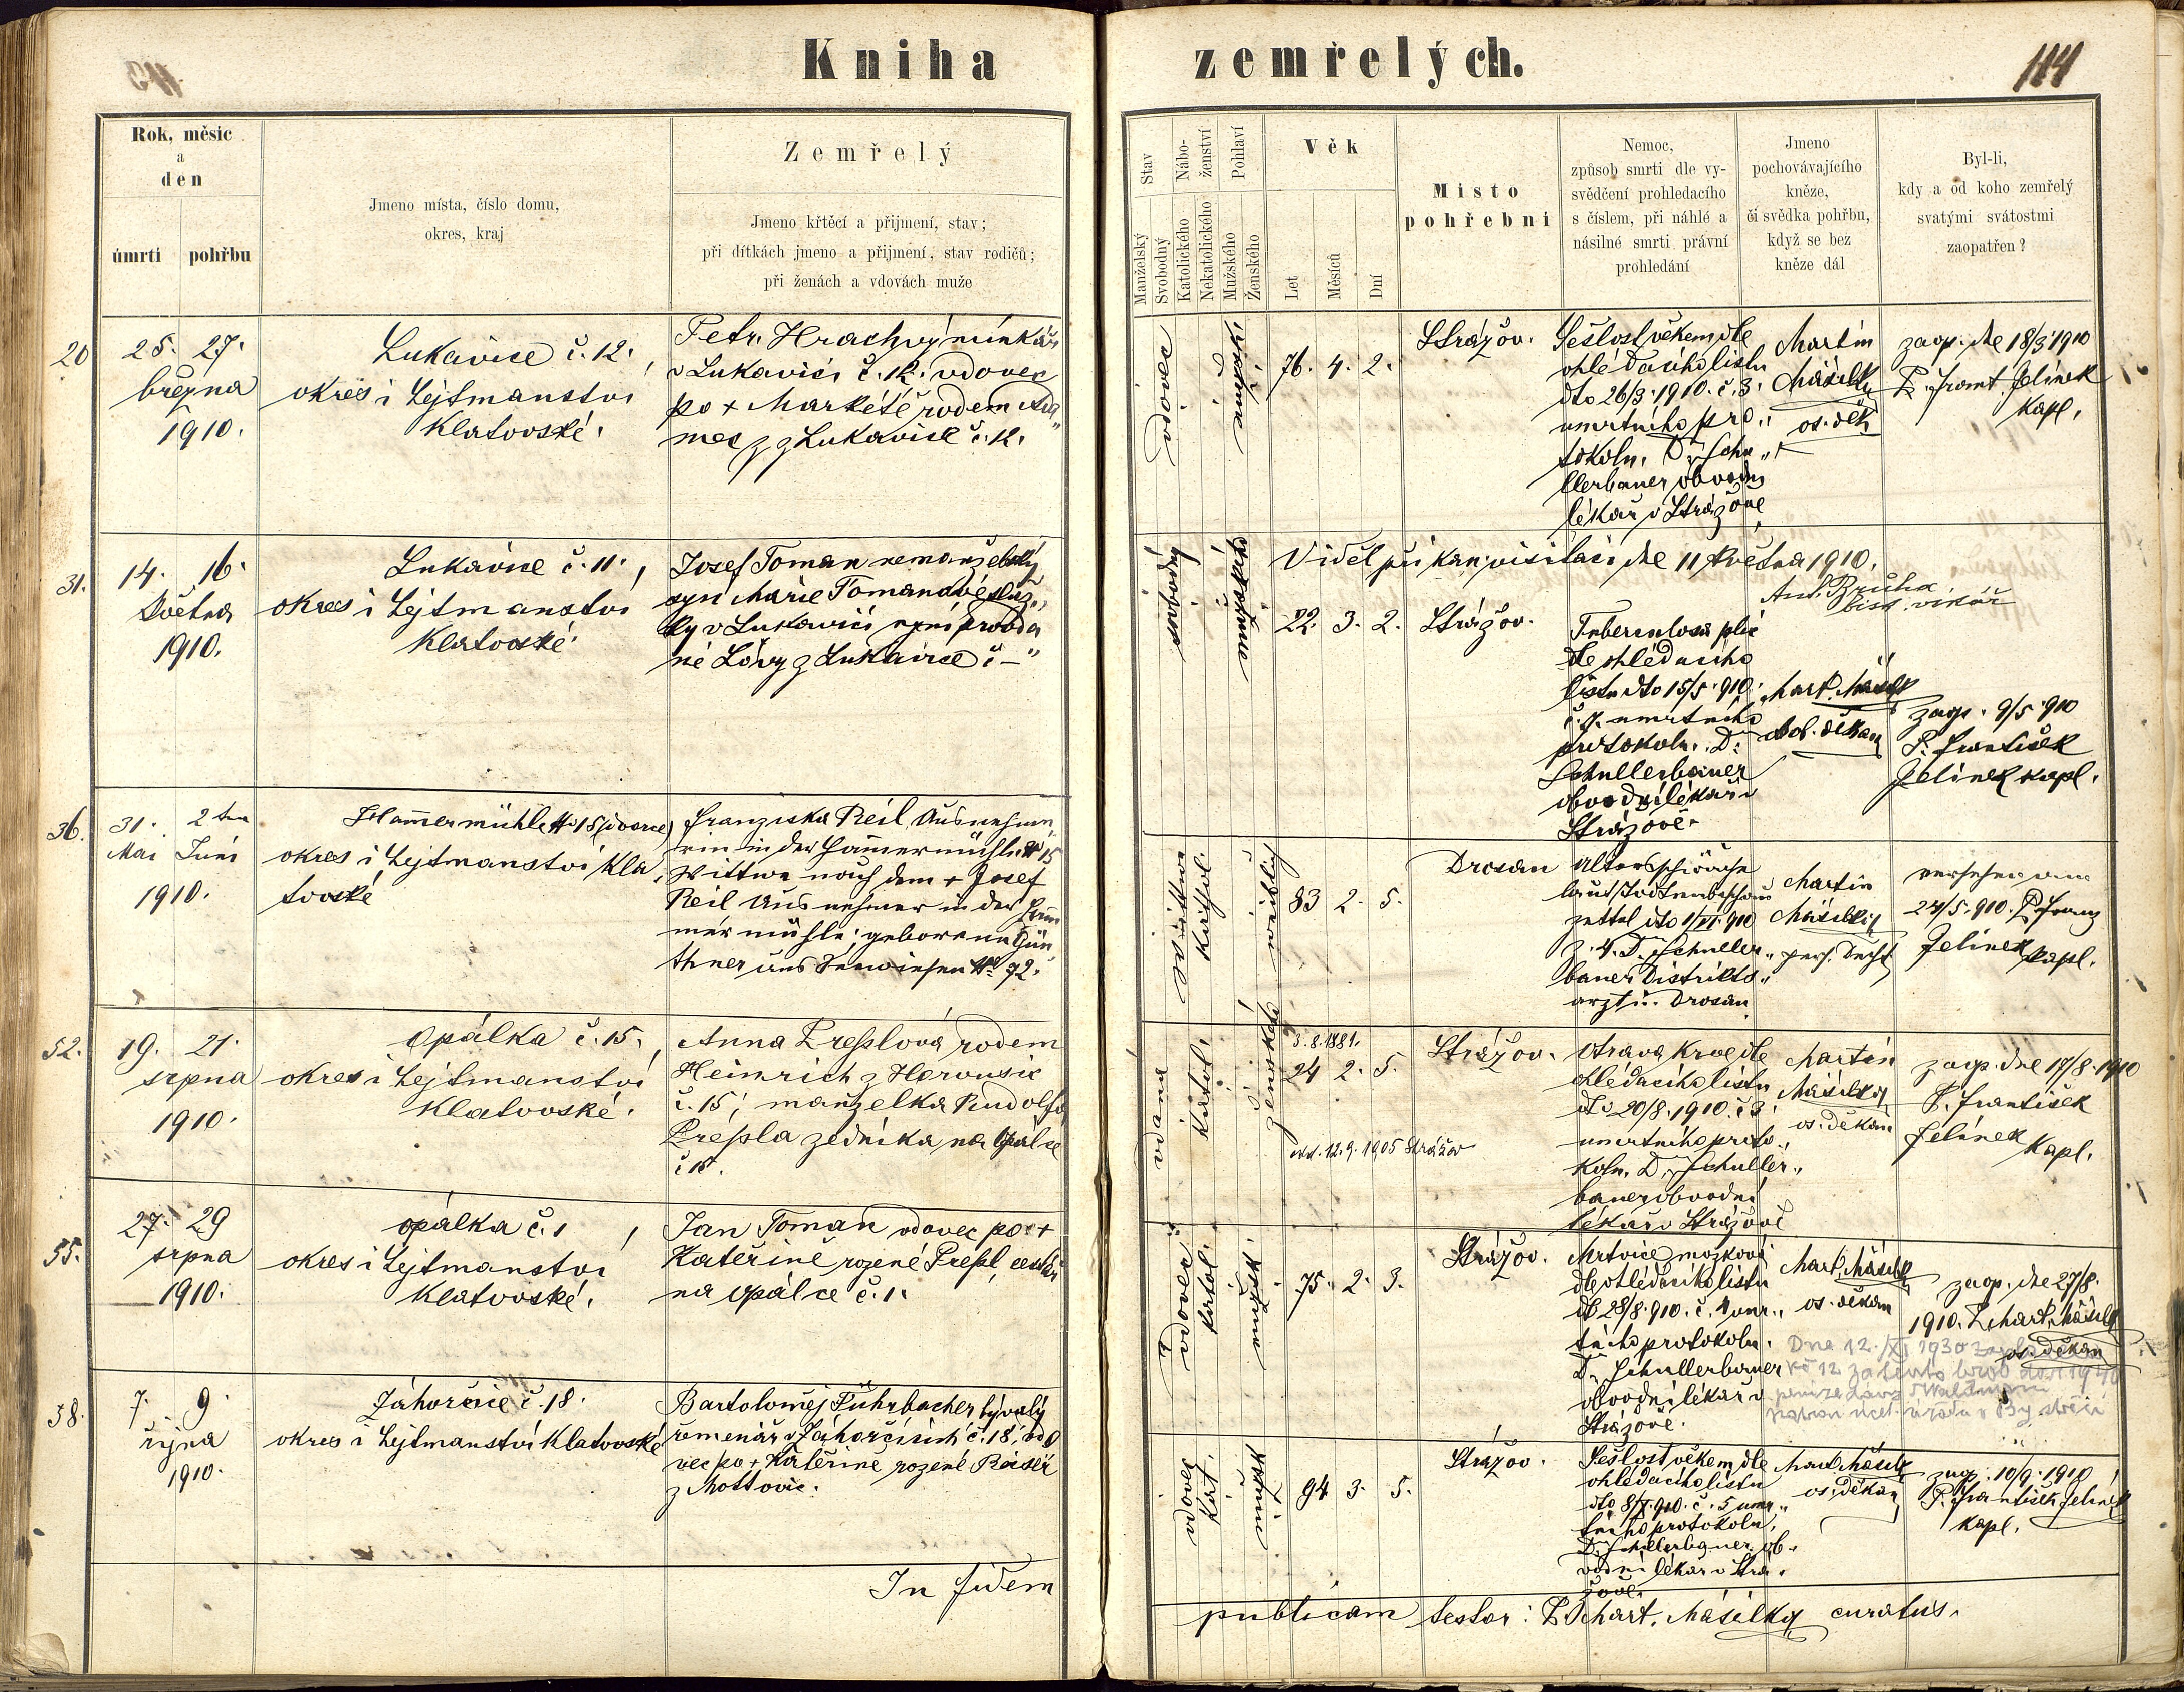 Kniha zemřelých.
114
Rok, měsíc
a
den
úmrtí
pohřbu
Jmeno místa, číslo domu,
okres, kraj
Zemřelý
Jmeno křtěcí a přijmení, stav;
při dítkách jmeno a přijmení, stav rodičů;
při ženách a vdovách muže
Stav
Manželský
Svobodný
Nábo-
ženství
Katolického
Nekatolického
Pohlaví
Mužského
Ženského
Věk
Let
Měsíců
Dní
Místo
pohřební
Nemoc,
způsob smrti dle vy-
svědčení prohledacího
s číslem, při náhlé a
násilné smrti právní
prohledání
Jmeno
pochovávajícího
kněze,
či svědka pohřbu,
když se bez
kněze dál
Byl-li,
kdy a od koho zemřelý
svatými svátostmi
zaopatřen?
20
25. 27.
března
1910.
Lukavice č. 12.,
okres i hejtmanství
Klatovské.
Petr Hrachový
v Lukavici č. 12. vdovec
po + Markétě rodem Ada„
mes z Lukavice č. 12.
vdovec
mužské
76. 4. 2.
Strážov.
Sešlost věkem dle
ohledacího listu
dto 26/3. 1910. č. 3.
umrtního pro„
tokolu. Dr. Schu„
llerbauer obvodní
lékař v Strážově
Martin
Másilko
os. děk
zaop. dne 18/3 1910
P. Frant. Jelínek
kapl.
31.
14. 16.
května
1910.
Lukavice č. 11.,
okres i hejtmanství
Klatovské.
Josef Toman nemanželský
syn Marie Tomanové služ„
ky v Lukavici nyní provda
né z Lukavice č –"
svobodný
mužské
Viděl při kan. visitaci dne 11 května 1910.
Ant. Bruha
bisk. vikář
22. 3. 2.
Strážov.
Tuberculosa plic
dle ohledacího
listu dto 15/5. 910.
č. 7. umrtního
protokolu. Dr.
Schullerbauer
obvodní lékař v
Strážově.
Mart. Másilko
os. děkan
zaop. 9/5. 910
P. František
Jelínek kapl.
36.
31. 2ten
Mai Juni
1910.
Hammermühle No 15 (dvorce)
okres i hejtmanství Kla„
tovské
Franziska Reil Ausnehme„
rin in der Hammermühle No 15
Wittwe nach dem + Josef
Reil Ausnehmer in der Ham
mermühle; geborene Gün
thner aus Seewiesen No 92.
Wittwe
Kathol.
weiblich
83 2. 5.
Drosau
Altersschwäche
laut Todtenbeschau
zettel dto 1/VI. 910
Z. 4. Dr. Schuller„
bauer Distrikts„
arzt in Drosau
Martin
Másilko
pers. Decht
versehen am
24/5. 910. P. Franz
Jelínek kapl.
52.
19. 21.
srpna
1910.
Opálka č. 15.,
okres i hejtmanství
Klatovské.
Anna Presslová rodem
Heinrich z Hervusic
č. 15; manželka Rudolfa
Pressla zedníka na Opálce
č. 15.
vdaná
katol.
ženské
3. 8. 1881.
24 2. 5.
odd. 12. 9. 1905 Strážov
Strážov.
Otrava krve dle
ohledacího listu
dto 20/8. 1910. č 3.
umrtního proto„
kolu. Dr. Schuller„
bauer obvodní
lékař v Strážově
Martin
Másilko
os. děkan
zaop. dne 17/8. 1910
P. František
Jelínek kapl.
55.
27. 29
srpna
1910.
Opálka č. 1,
okres i hejtmanství
Klatovské.
Jan Toman vdovec po +
Kateřině rozené Pressl, cestář
na Opálce č. 1.
Vdovec
katol.
mužsk.
75. 2. 3.
Strážov.
Mrtvice mozková
dle ohledacího listu
dto 28/8. 910. č. 4 umr„
tního protokolu.
Dr. Schullerbauer
obvodní lékař v
Strážově.
Mart. Másilko
os. děkan
zaop. dne 27/8.
1910. P. Mart. Másilko
os. děkan
Dne 12./XI 1930
Kč 12 za tento hrob do r. 1940
58.
7. 9.
října
1910.
Záhorčice č. 18.
okres i hejtmanství Klatovské
Bartoloměj Führbacher bývalý
řemenář v Záhorčicích č. 18, vdo
vec po + Kateřině rozené
z Mottovic.
vdovec
kat.
mužské
94 3. 5.
Strážov.
Sešlost věkem dle
ohledacího listu
dto 8/X. 910. č. 5 umr„
tního protokolu.
Dr. Schullerbauer ob„
vodní lékař v Strá„
žově.
Mart. Másilko
os. děkan
zaop. 10/9. 1910
P. František Jelínek
kapl.
In fidem
publicam testor: P. Mart. Másilko curatus.